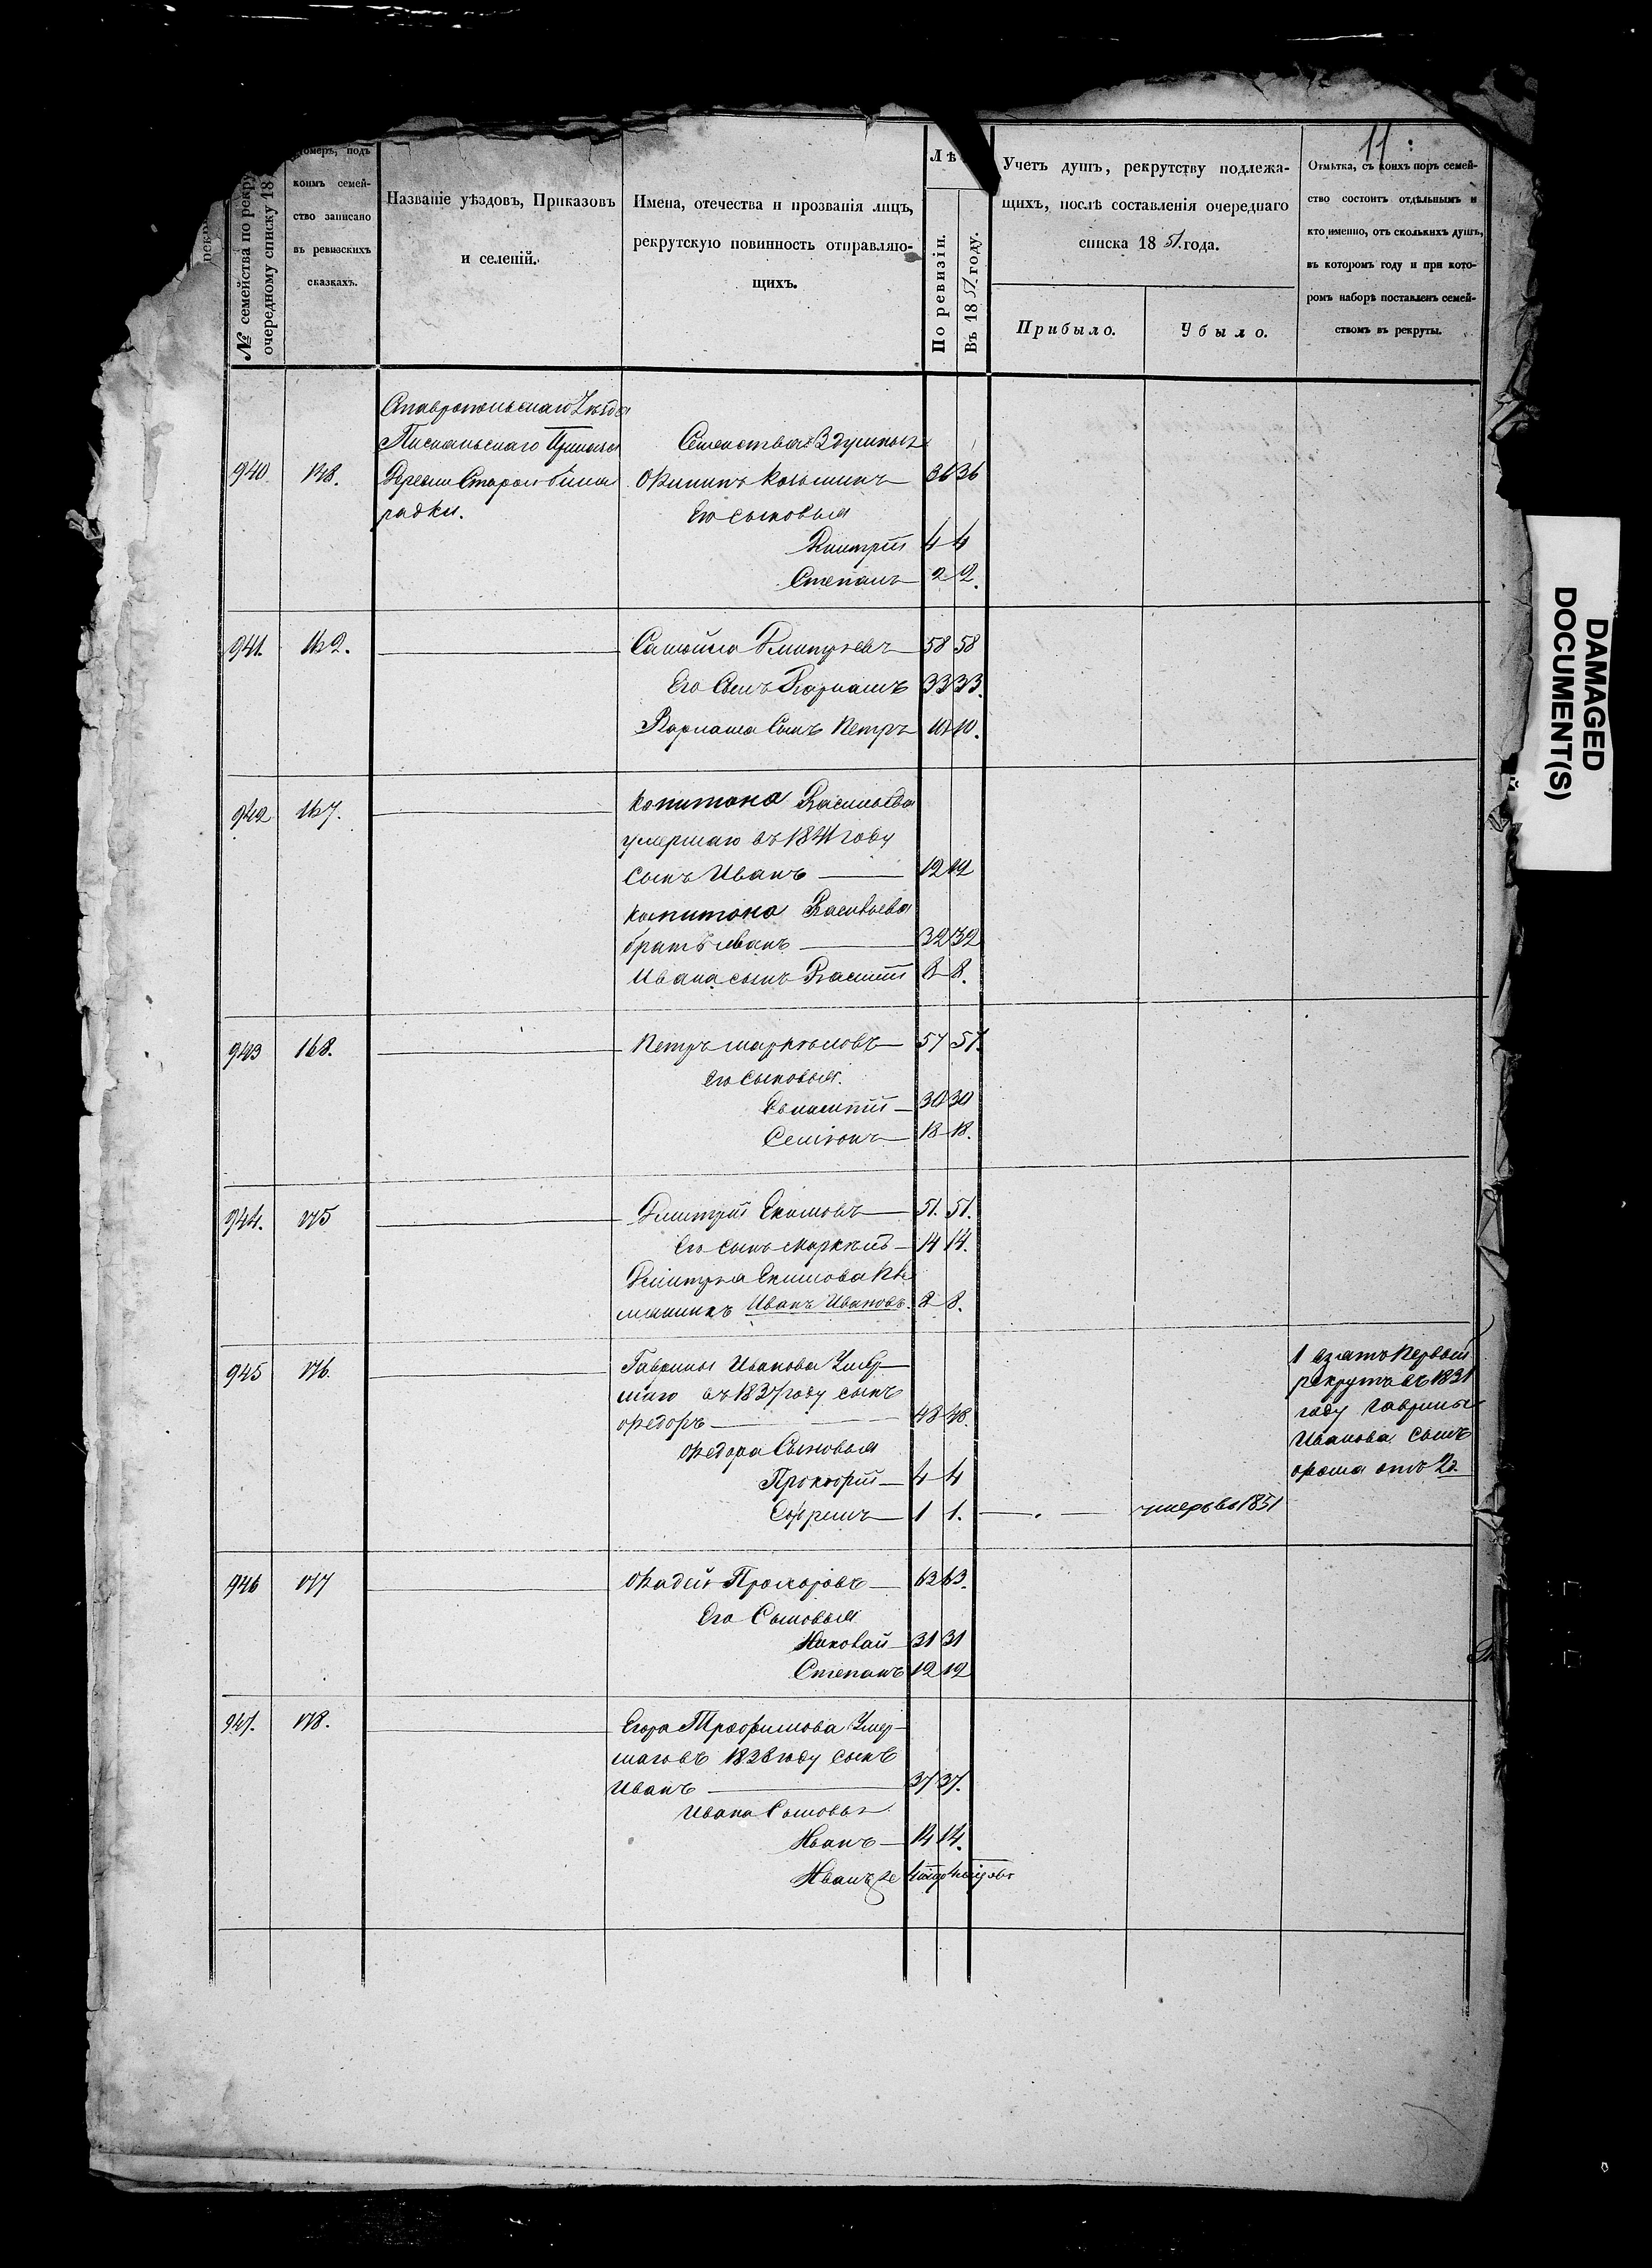 11.
№ семейства по рекру
очередному списку 18
номеръ, подъ
коимъ семей-
ство записано
въ ревизскихъ
сказкахъ.
Названіе уѣздовъ, Приказовъ
и селеній.
Имена, отечества и прозванія лицъ,
рекрутскую повинность отправляю-
щихъ.
Лѣ
По ревизіи.
Въ 1851 году.
Учетъ душъ, рекрутству подлежа-
щихъ, послѣ составленія очереднаго
списка 1851 года.
Прибыло.
Убыло.
Отмѣтка, съ коихъ поръ семей-
ство состоитъ отдѣльнымъ и
кто именно, отъ сколькихъ душъ,
въ которомъ году и при кото-
ромъ наборѣ поставленъ семей-
ствомъ въ рекруты.
Ставропольскаго Уѣзда
Приказа
Семейства 3 душныя
940. Деревни Старой 36 36
радки. Его сыновья
Дмитрій 4 4
Степанъ 2 2.
941. 162. Самойло Дмитріевъ 58 58
Его Сынъ Варламъ 33 33.
Варлама Сынъ Петръ 10 10.
942 167. Капитона Васильева
умершаго въ 1841 году
сынъ Иванъ 12 12
Капитона Васильева
братъ Иванъ 32 32
Ивана сынъ Василій 8 8.
943 168. Петръ Маркѣловъ 57 57.
Его сыновья.
30 30
Семіонъ 18 18.
944. 175 Дмитрій Екимовъ 51. 51.
Его сынъ Маркѣлъ 14 14.
Дмитрія Екимова пле
мянникъ Иванъ Ивановъ. 8 8.
945 176. Гаврилы Ивановы Умер-
шаго въ 1837 году сынъ
Федоръ 48 48.
Федора Сыновья
Прокофій 4 4
Ефремъ 1 1. умеръ въ 1851
1 взятъ первый
рекрутъ въ 1831
году Гаврилы
Иванова сынъ
Фома отъ 2 д.
946 177 Фадей Прохоровъ 63 63.
Его Сыновья
Николай 31 31
Степанъ 12 12
947. 178. Егора Трофимова Умер-
шаго въ 1838 году сынъ
Иванъ 37 37.
Ивана Сыновья
Иванъ 14 14.
Иванъ же
DAMAGED
DOCUMENT(S)